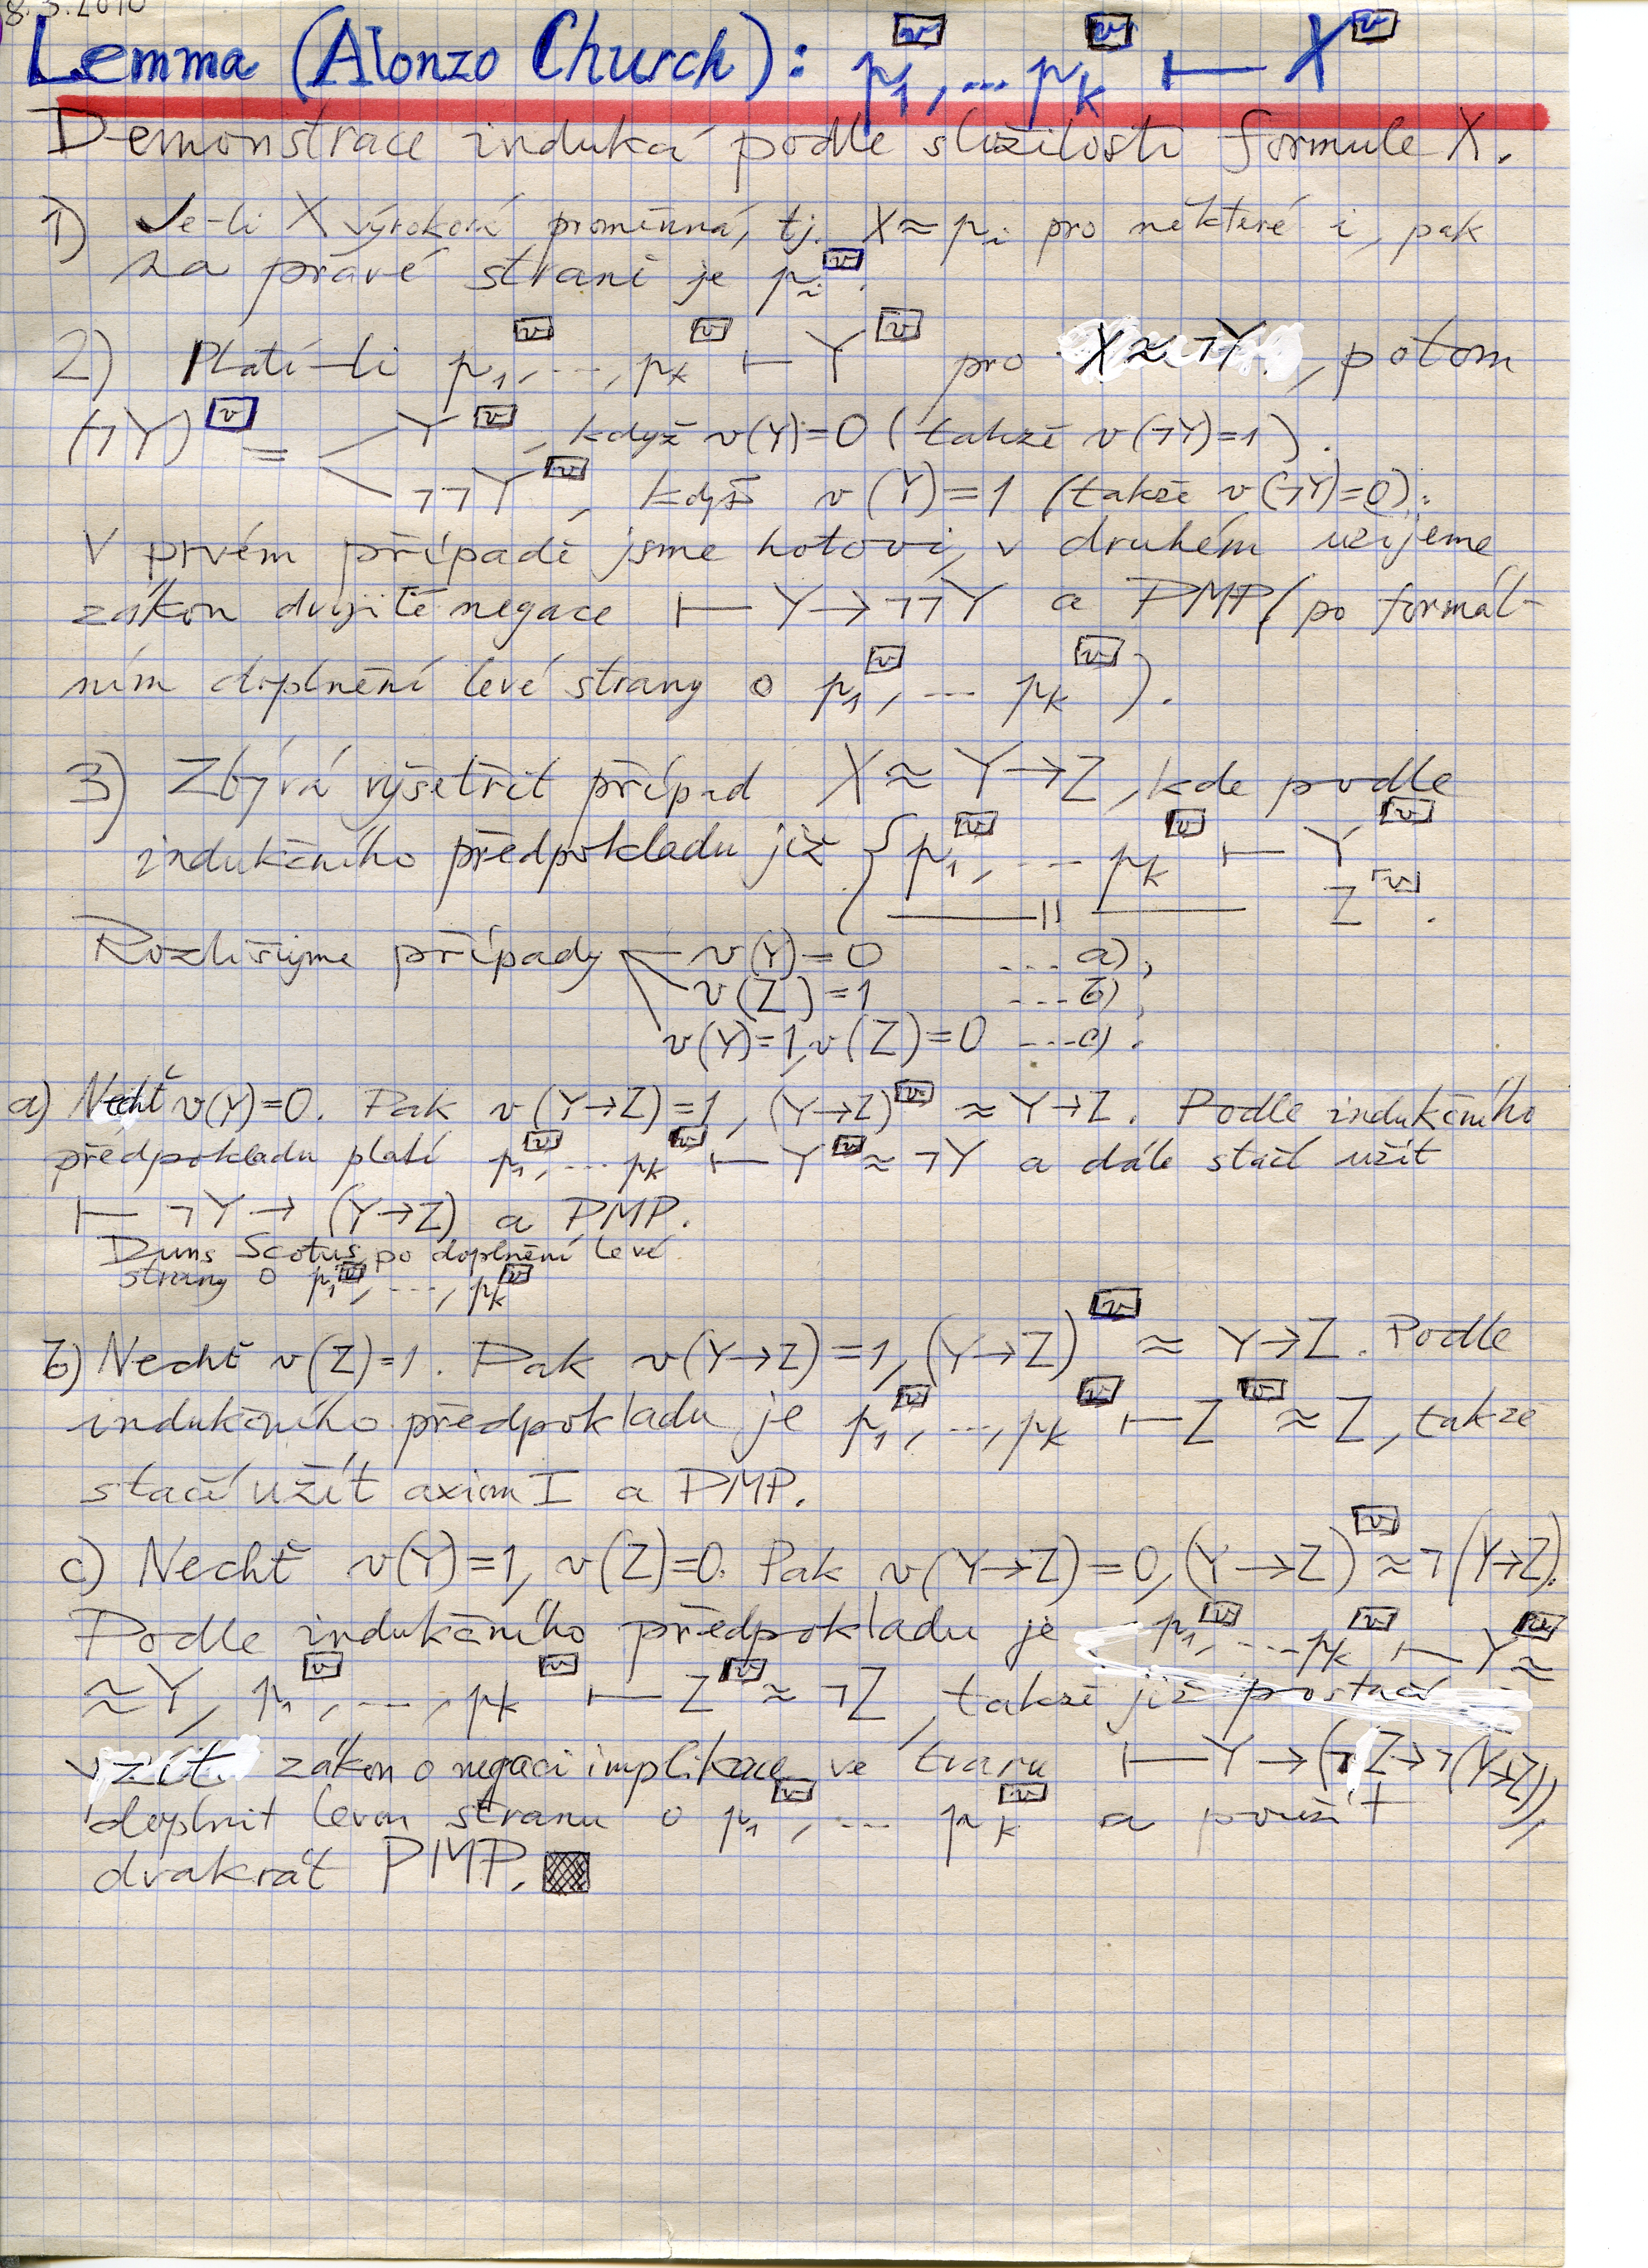 8.3.2010
Lemma (Alonzo Church): p₁^[v], ... p_k^[v] ⊢ X^[v]
Demonstrace induká podle složitosti formule X.
1) Je-li X výroková proměnná, tj. X ≈ pᵢ pro některé i, pak
na pravé straně je pᵢ^[v].
2) Platí-li p₁^[v], ..., p_k^[v] ⊢ Y^[v] pro X ≈ ¬Y, potom
(¬Y)^[v] = < Y^[v], když v(Y)=0 (takže v(¬Y)=1).
¬¬Y^[v], když v(Y)=1 (takže v(¬Y)=0).
V prvém případě jsme hotovi, v druhém užijeme
zákon dvojité negace ⊢ Y→¬¬Y a PMP (po formál-
ním doplnění levé strany o p₁^[v], ... p_k^[v]).
3) Zbývá vyšetřit případ X ≈ Y→Z, kde podle
indukčního předpokladu již { p₁^[v], ... p_k^[v] ⊢ Y^[v]
—— || —— Z^[v].
Rozlišujme případy v(Y)=0 ... a),
v(Z)=1 ... b),
v(Y)=1, v(Z)=0 ... c).
a) Nechť v(Y)=0. Pak v(Y→Z)=1, (Y→Z)^[v] ≈ Y→Z. Podle indukčního
předpokladu platí p₁^[v], ... p_k^[v] ⊢ Y^[v] ≈ ¬Y a dále stačí užít
⊢ ¬Y → (Y→Z) a PMP.
Duns Scotus po doplnění levé
strany o p₁^[v], ..., p_k^[v]
b) Nechť v(Z)=1. Pak v(Y→Z)=1, (Y→Z)^[v] ≈ Y→Z. Podle
indukčního předpokladu je p₁^[v], ..., p_k^[v] ⊢ Z^[v] ≈ Z, takže
stačí užít axiom I a PMP.
c) Nechť v(Y)=1, v(Z)=0. Pak v(Y→Z)=0, (Y→Z)^[v] ≈ ¬(Y→Z).
Podle indukčního předpokladu je p₁^[v], ... p_k^[v] ⊢ Y^[v] ≈
≈ Y, p₁^[v], ..., p_k^[v] ⊢ Z^[v] ≈ ¬Z, takže již postačí
vzít zákon o negaci implikace ve tvaru ⊢ Y → (¬Z → ¬(Y→Z)),
doplnit levou stranu o p₁^[v], ... p_k^[v] a použít
dvakrát PMP.